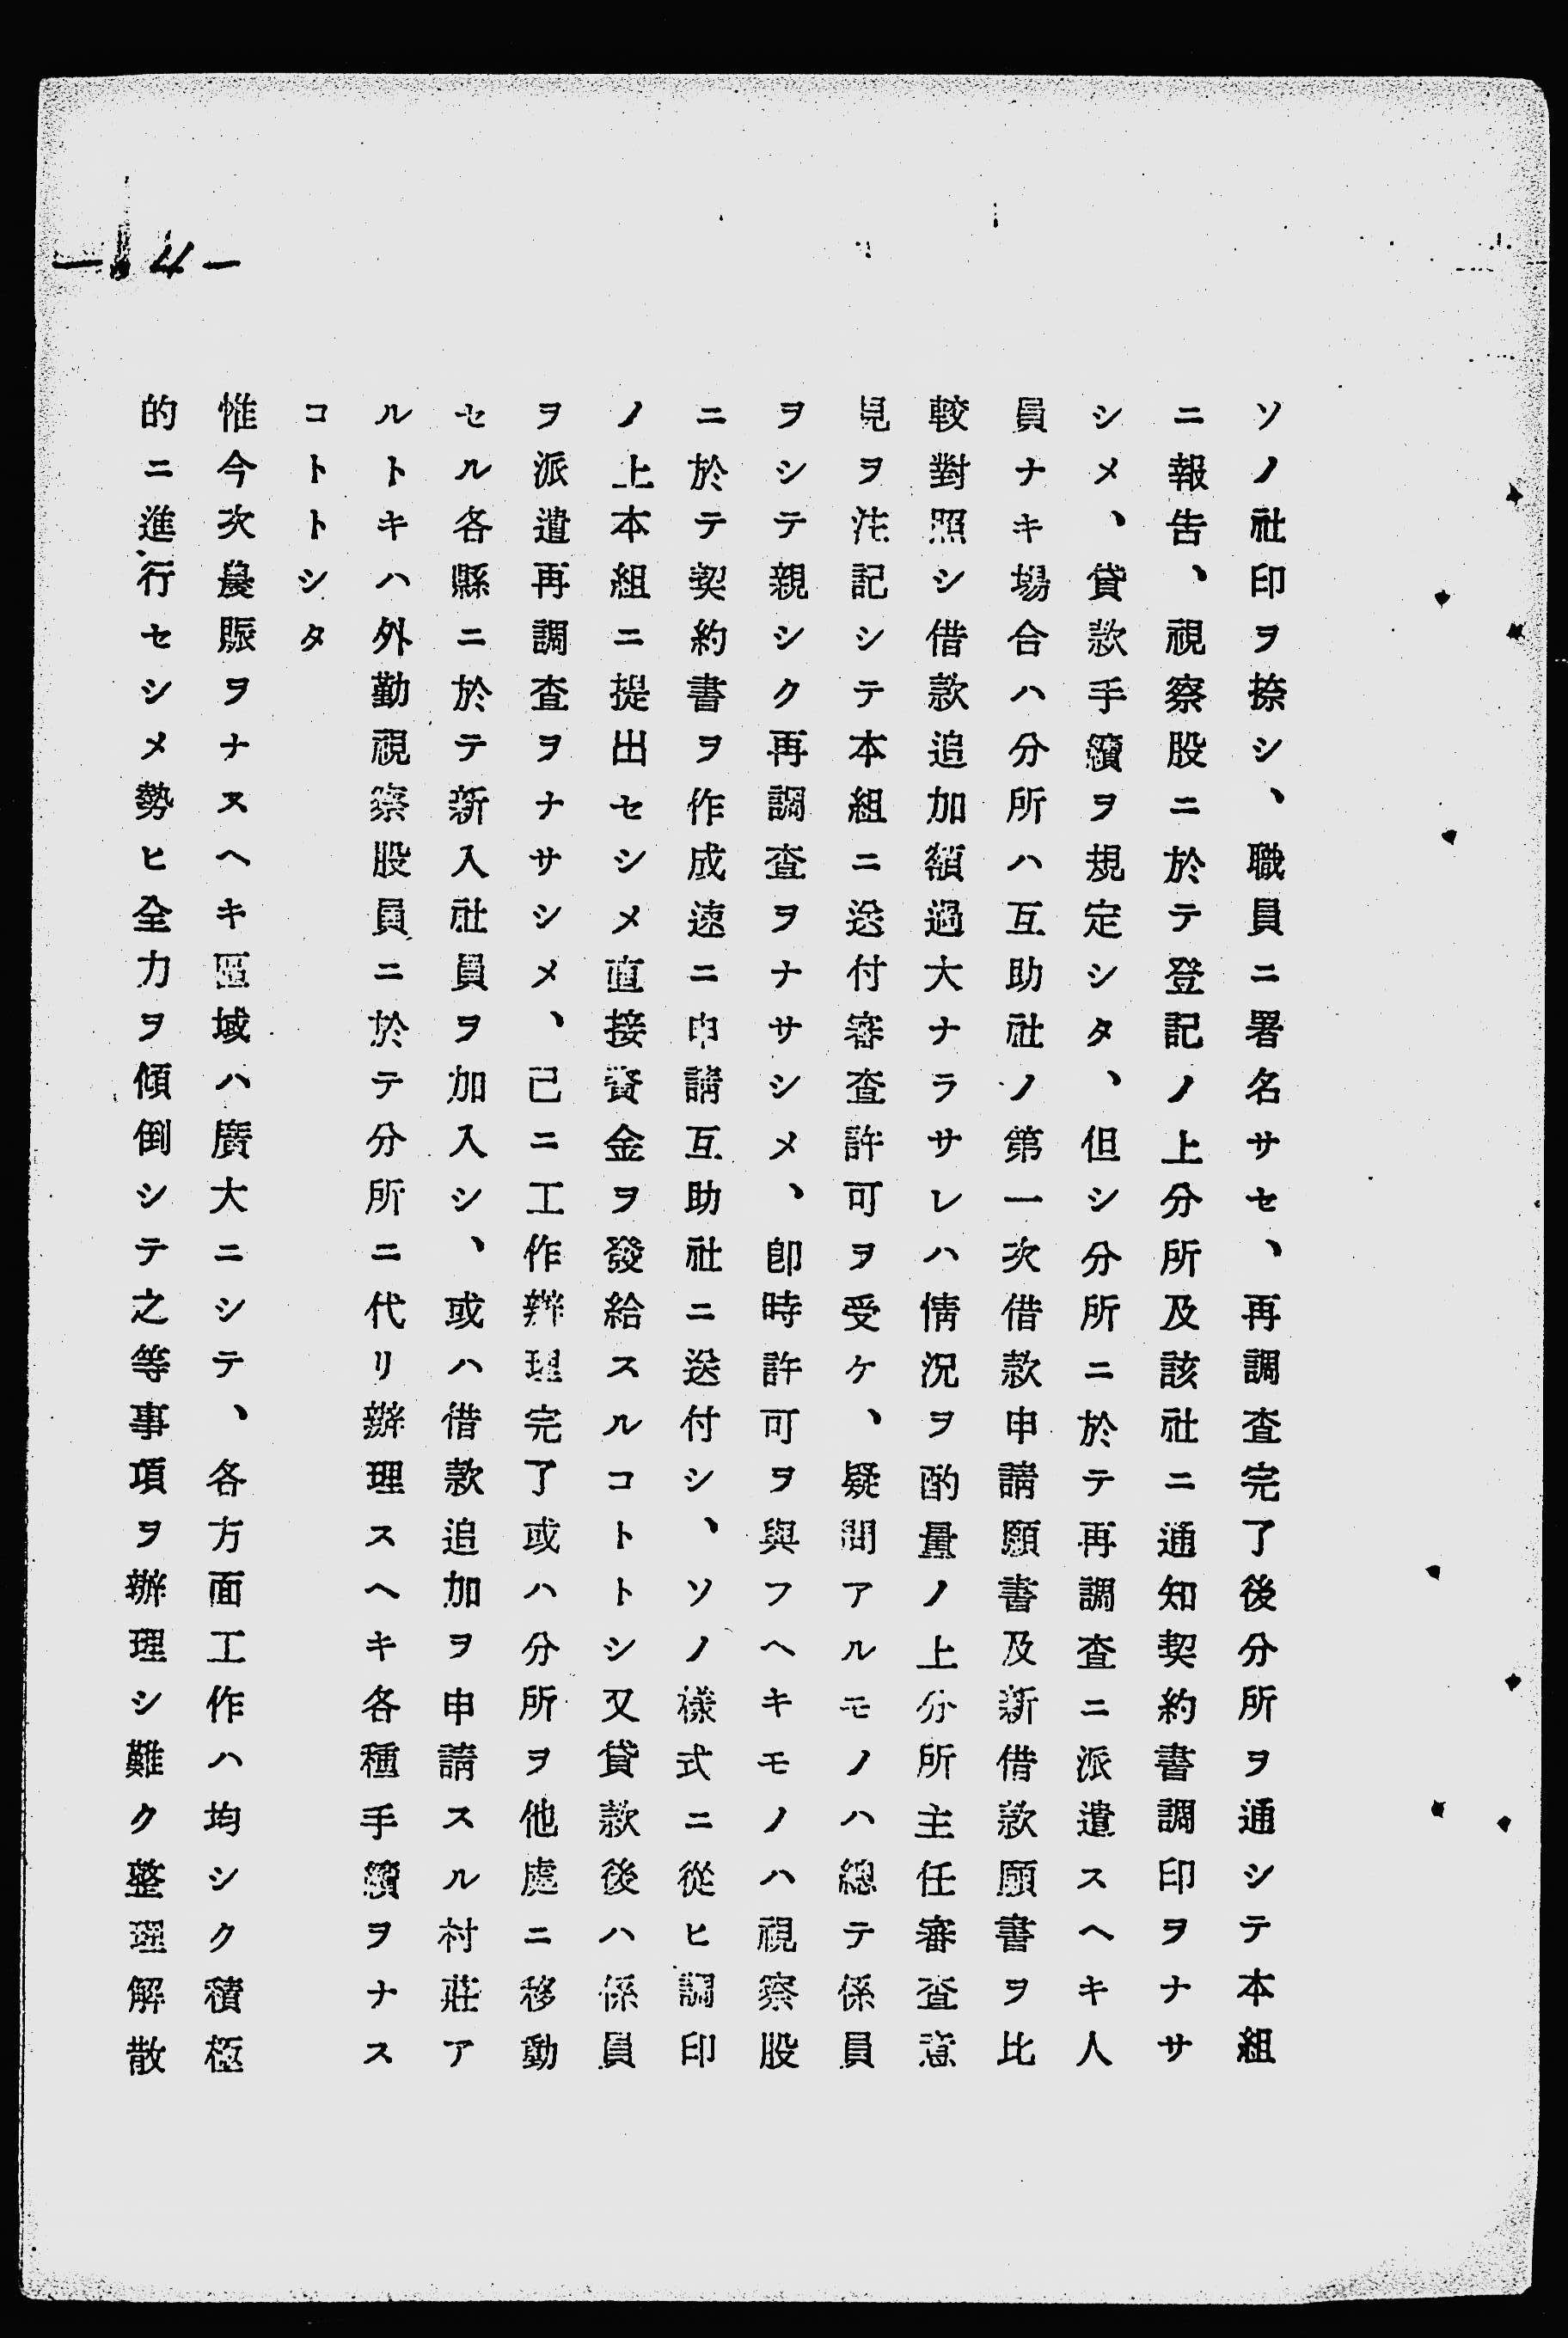 ソノ社印ヲ捺シ、職員ニ署名サセ、再調査完了後分所ヲ通シテ本組
ニ報告、視察股ニ於テ登記ノ上分所及該社ニ通知契約書調印ヲナサ
シメ、貸款手續ヲ規定シタ、但シ分所ニ於テ再調査ニ派遣スヘキ人
員ナキ場合ハ分所ハ互助社ノ第一次借款申請願書及新借款願書ヲ比
較對照シ借款追加額過大ナラサレハ情況ヲ酌量ノ上分所主任審査意
見ヲ註記シテ本組ニ送付審査許可ヲ受ケ、疑問アルモノハ總テ係員
ヲシテ親シク再調査ヲナサシメ、卽時許可ヲ與フヘキモノハ視察股
ニ於テ契約書ヲ作成速ニ申請互助社ニ送付シ、ソノ樣式ニ從ヒ調印
ノ上本組ニ提出セシメ直接資金ヲ發給スルコトトシ又貸款後ハ係員
ヲ派遣再調査ヲナサシメ、己ニ工作辦理完了或ハ分所ヲ他處ニ移動
セル各縣ニ於テ新入社員ヲ加入シ、或ハ借款追加ヲ申請スル村莊ア
ルトキハ外勤視察股員ニ於テ分所ニ代リ辦理スヘキ各種手續ヲナス
コトトシタ
惟今次農賑ヲナスヘキ區域ハ廣大ニシテ、各方面工作ハ均シク積極
的ニ進行セシメ勢ヒ全力ヲ傾倒シテ之等事項ヲ辦理シ難ク整理解散